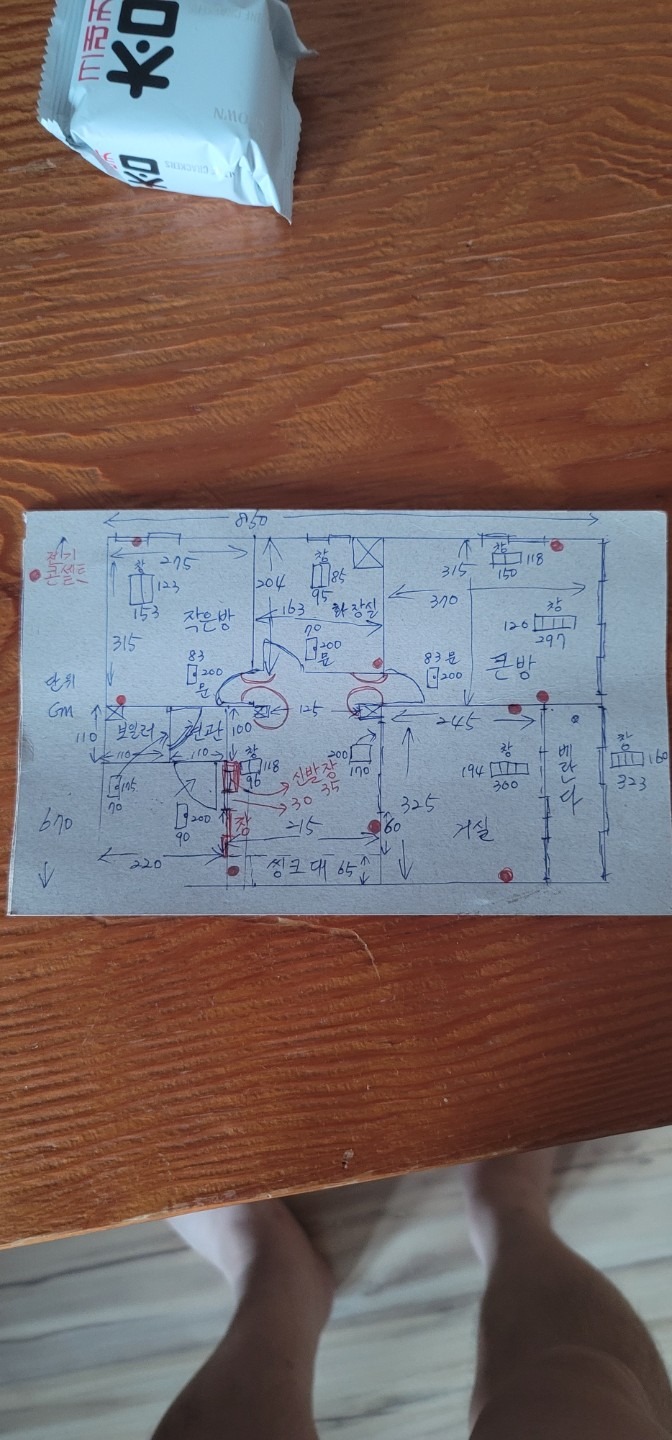 참
크래커
CROWN
CRACKERS
참
850
전기
콘센트
275
창
123
153
작은방
315
204
창
85
95
163
화장실
70
200
문
315
창
118
150
370
창
120
297
큰방
83
200
문
83 문
200
단위
CM
110
보일러
현관
100
110
110
125
245
베란다
창
160
323
창
118
96
신발장
30 35
200
170
창
194
300
325
175
70
200
90
장
215
60
거실
670
220
씽크대 65